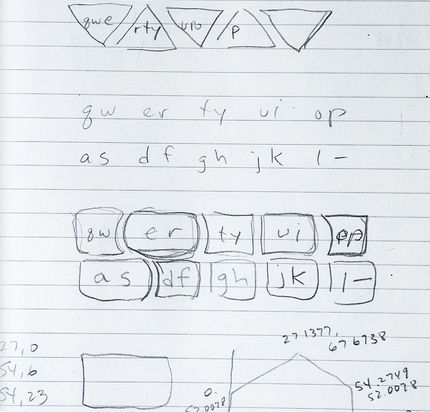 qwe rty uio p
qw er ty ui op
as df gh jk l-
qw er ty ui op
as df gh jk l-
27,0
54,6
54,23
27 1377,
67 6738
54.2749
52.0078
0.
52.0078